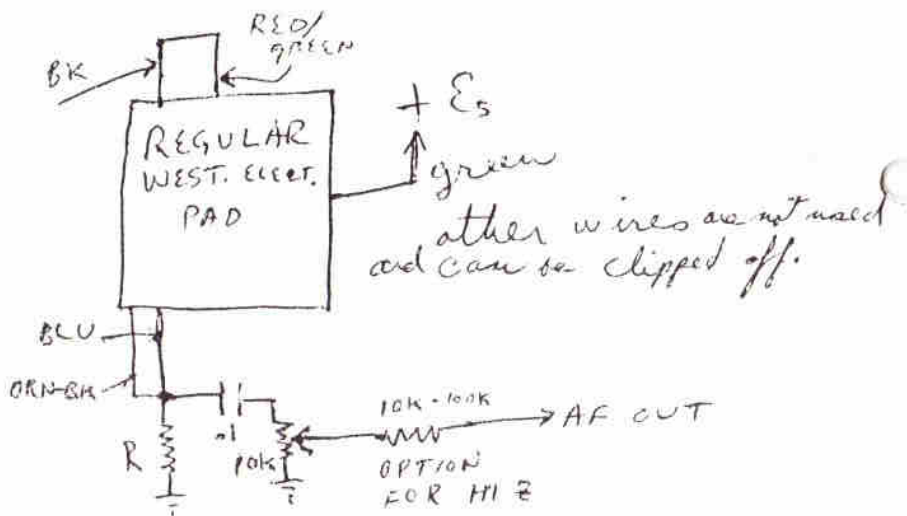 BK
RED/
GREEN
REGULAR
WEST. ELECT.
PAD
+ Es
green
other wires are not used
and can be clipped off.
BLU
ORN-BK
R
.1
10K
10K-100K
AF OUT
OPTION
FOR HI Z